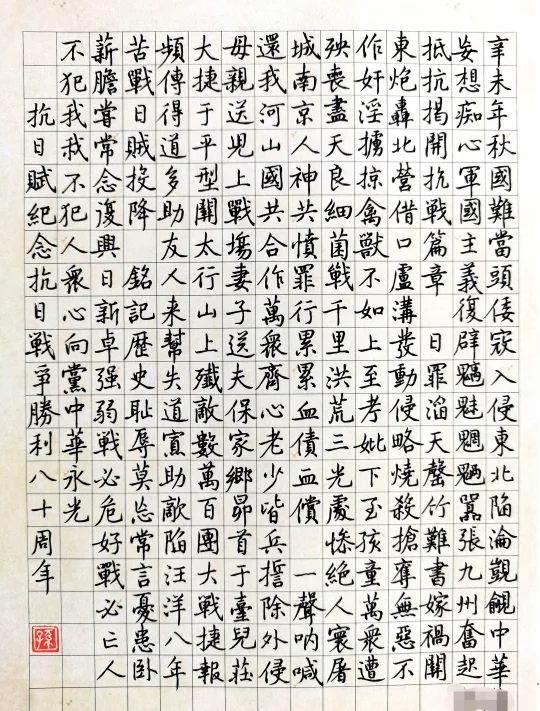 辛未年秋國難當頭倭寇入侵東北陷淪覬覦中華
妄想痴心軍國主義復辟魑魅魍魎囂張九州奮起
抵抗揭開抗戰篇章 日罪滔天罄竹難書嫁禍關
東炮轟北營借口盧溝發動侵略燒殺搶奪無惡不
作奸淫擄掠禽獸不如上至考妣下至孩童萬衆遭
殃喪盡天良細菌戰千里洪荒三光處慘絕人寰屠
城南京人神共憤罪行累累血債血償 一聲吶喊
還我河山國共合作萬衆齊心老少皆兵誓除外侵
母親送兒上戰場妻子送夫保家鄉昴首于臺兒莊
大捷于平型關太行山上殲敵數萬百團大戰捷報
頻傳得道多助 友人来幫失道寡助敵陷汪洋八年
苦戰日賊投降 銘記歷史耻辱莫忘常言憂患卧
薪膽嘗常念復興日新卓强弱戰必危好戰必亡人
不犯我我不犯人衆心向黨中華永光
抗日賦紀念抗日戰爭勝利八十周年
孫